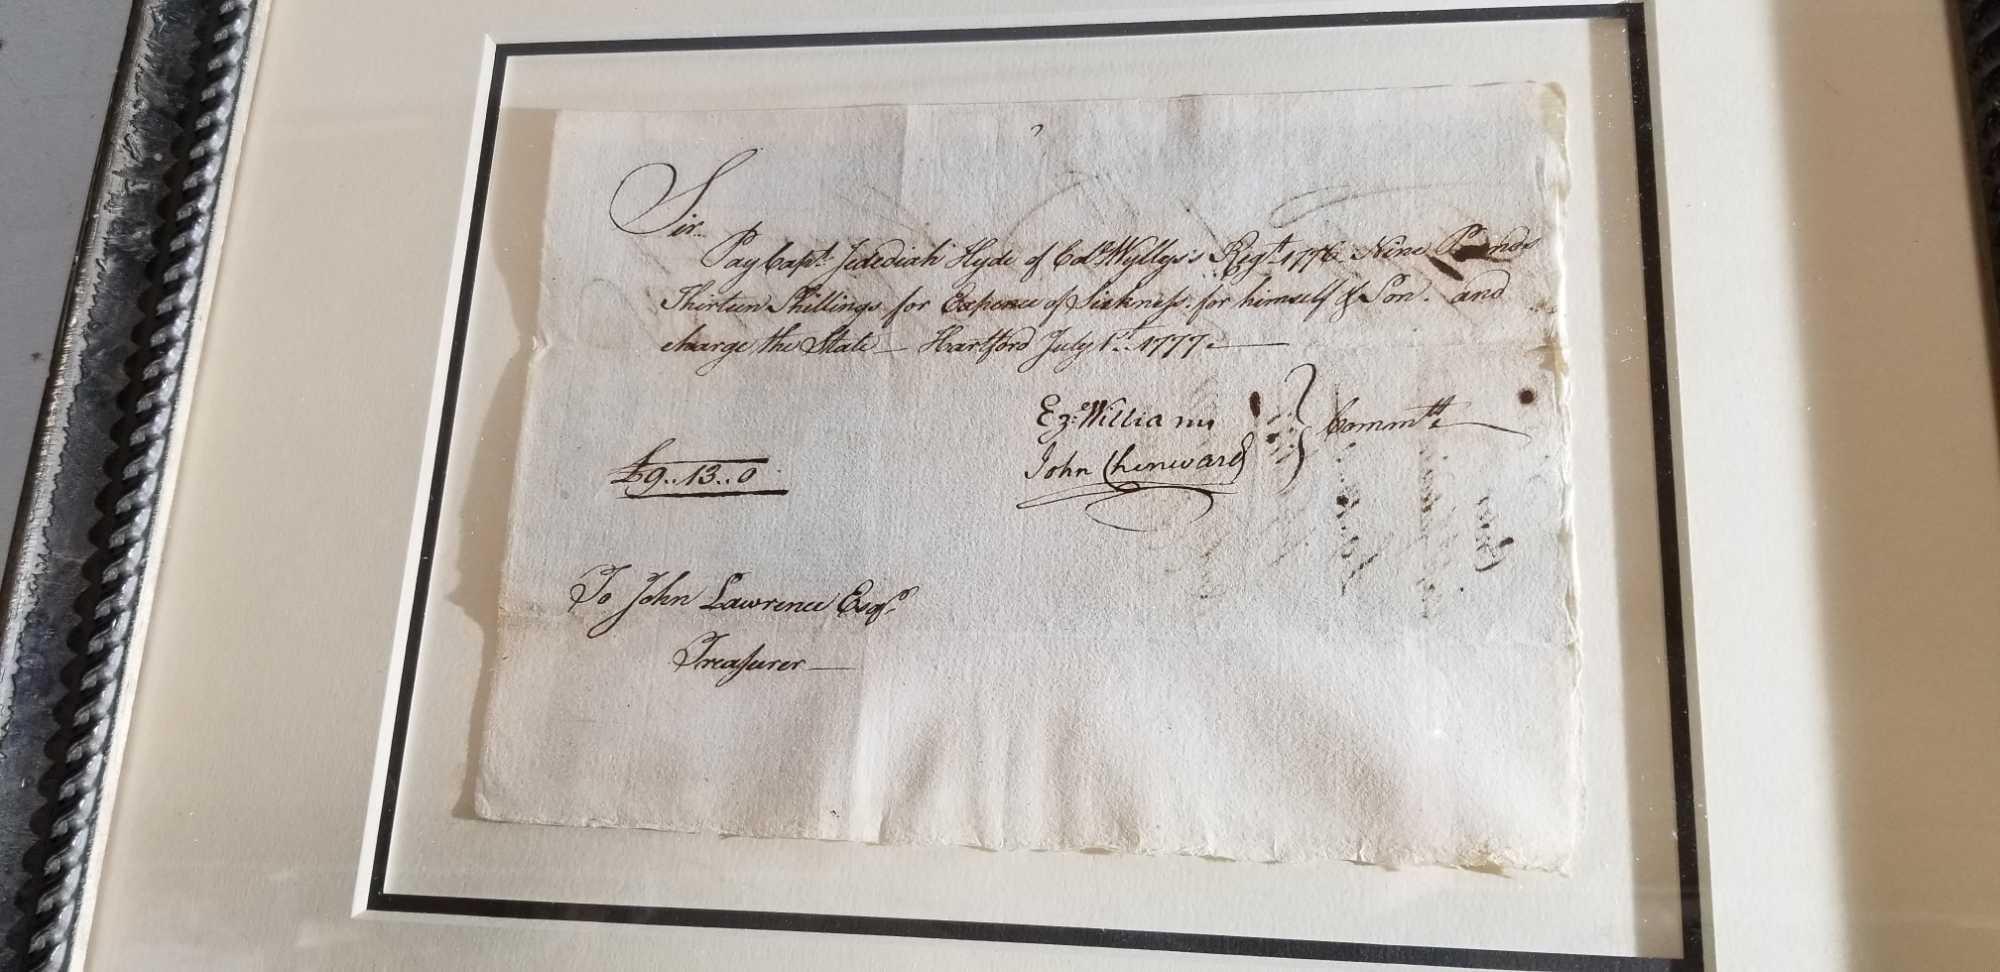 Sir..
Pay Capt. Jedediah Hyde of Colo Wyllys's Regt. 1776 Nine Pounds
Thirteen Shillings for Expence of Sickness for himself & Son. and
charge the State — Hartford July 1st. 1777. —
Ez: Williams
John Chenward } Commtte
£9..13..0
To John Lawrence Esqr.
Treasurer —